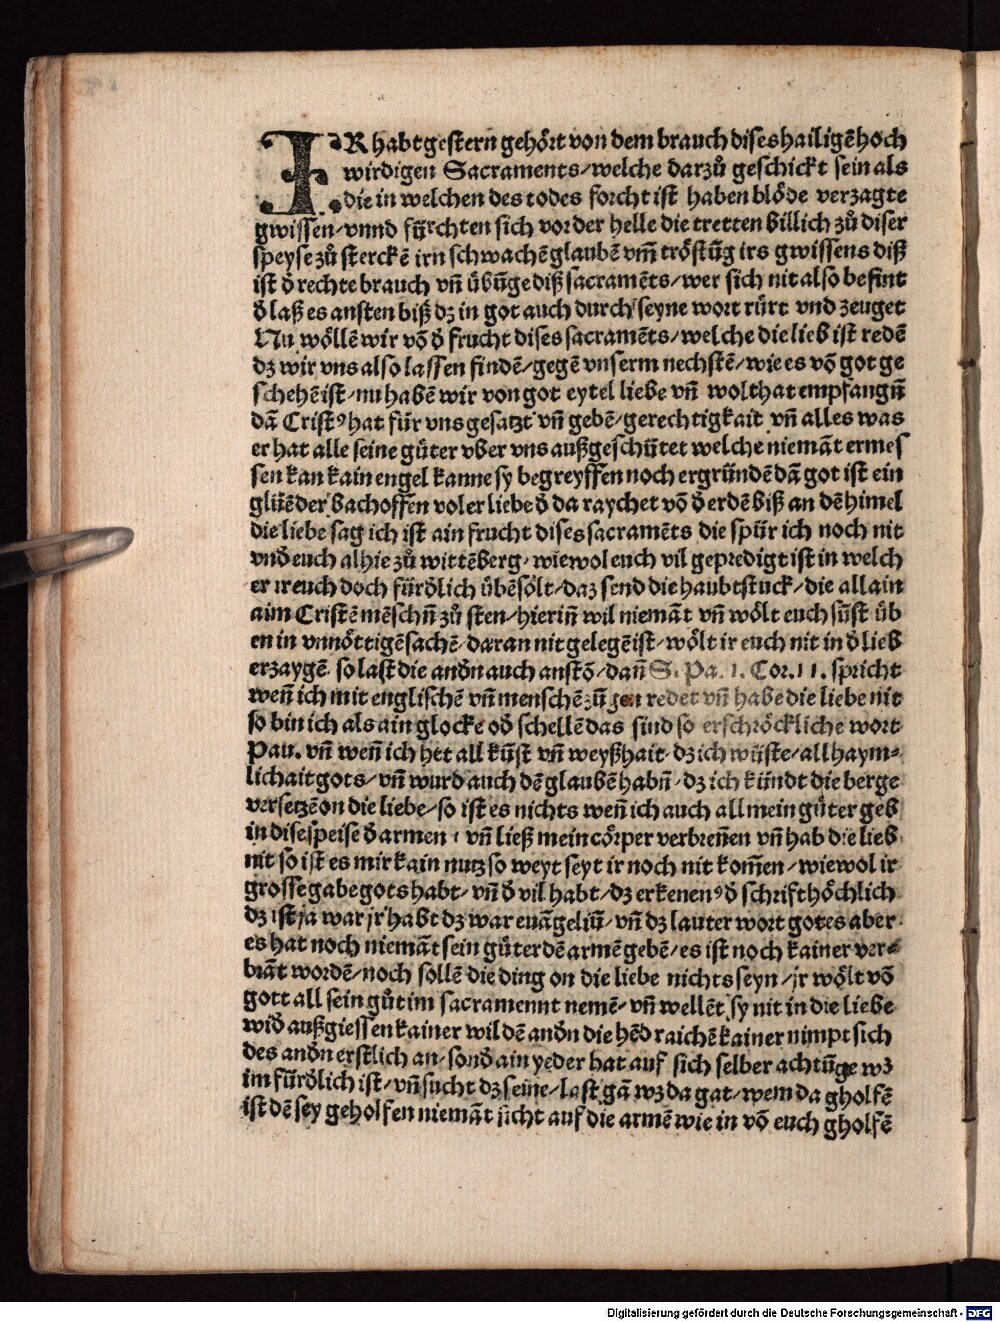 IR habt gestern gehört von dem brauch dises hailigē hoch
wirdigen Sacraments/welche darzů geschickt sein als
die in welchen des todes forcht ist haben blöde verzagte
gwissen/vnnd fürchten sich vor der helle die tretten billich zů diser
speyse zů sterckē irn schwachē glaubē vm̄ tröstūg irs gwissens diß
ist ð rechte brauch vn̄ übūge diß sacramēts/wer sich nit also befint
ð laß es ansten biß dz in got auch durch seyne wort rürt vnd zeuget
Nu wöllē wir vō ð frucht dises sacramēts/welche die lieb ist redē
dz wir vns also lassen findē/gegē vnserm nechstē/wie es vō got ge
schehē ist/nu habē wir von got eytel liebe vn̄ wolthat empfangn̄
dā Cristꝰ hat für vns gesatzt vn̄ gebē/gerechtigkait vn̄ alles was
er hat alle seine güter vber vns außgeschütet welche niemāt ermes
sen kan kain engel kanne sy begreyffen noch ergründē dā got ist ein
glüēder bachoffen voler liebe ð da raychet vō ð erdē biß an dē himel
die liebe sag ich ist ain frucht dises sacramēts die spür ich noch nit
vnð euch alhie zů wittēberg/wiewol euch vil gepredigt ist in welch
er ir euch doch fürðlich übē sölt/daz send die haubtstuck/die allain
aim Cristē mēschn̄ zů sten/hierin̄ wil niemāt vn̄ wölt euch sūst üb
en in vnnöttigē sachē/daran nit gelegē ist/wölt ir euch nit in ð lieb
erzaygē so last die anðn auch anstō/dan̄ S. Pa. 1. Cor. 11. spricht
wen̄ ich mit englischē vn̄ menschē zūgen redet vn̄ habe die liebe nit
so bin ich als ain glocke oð schellē das sind so erschröckliche wort
Pau. vn̄ wen̄ ich het all kūst vn̄ weyßhait/dz ich wüste/all haym⸗
lichait gots/vn̄ wurd auch dē glaubē habn̄/dz ich kündt die berge
versetzē on die liebe/so ist es nichts wen̄ ich auch all mein güter geb
in dise speise ð armen/vn̄ ließ mein cörper verbren̄en vn̄ hab die lieb
nit so ist es mir kain nutz so weyt seyt ir noch nit kom̄en/wiewol ir
grosse gabe gots habt/vn̄ ð vil habt/dz erkenenꝰ ð schrift höchlich
dz ist ja war jr habt dz war euāgeliū/vn̄ dz lauter wort gotes aber
es hat noch niemāt sein güter dē armē gebē/es ist noch kainer ver⸗
brāt wordē/noch sollē die ding on die liebe nichts seyn/jr wölt vō
gott all sein gůt im sacramennt nemē/vn̄ wellēt sy nit in die liebe
wið außgiessen kainer wil dē anðn die hēd raichē kainer nimpt sich
des anðn erstlich an/sonð ain yeder hat auf sich selber achtūge wz
im fürðlich ist/vn̄ sucht dz seine/last gā wz da gat/wem da gholfē
ist dē sey geholfen niemāt sicht auf die armē wie in vō euch gholfē
Digitalisierung gefördert durch die Deutsche Forschungsgemeinschaft - DFG